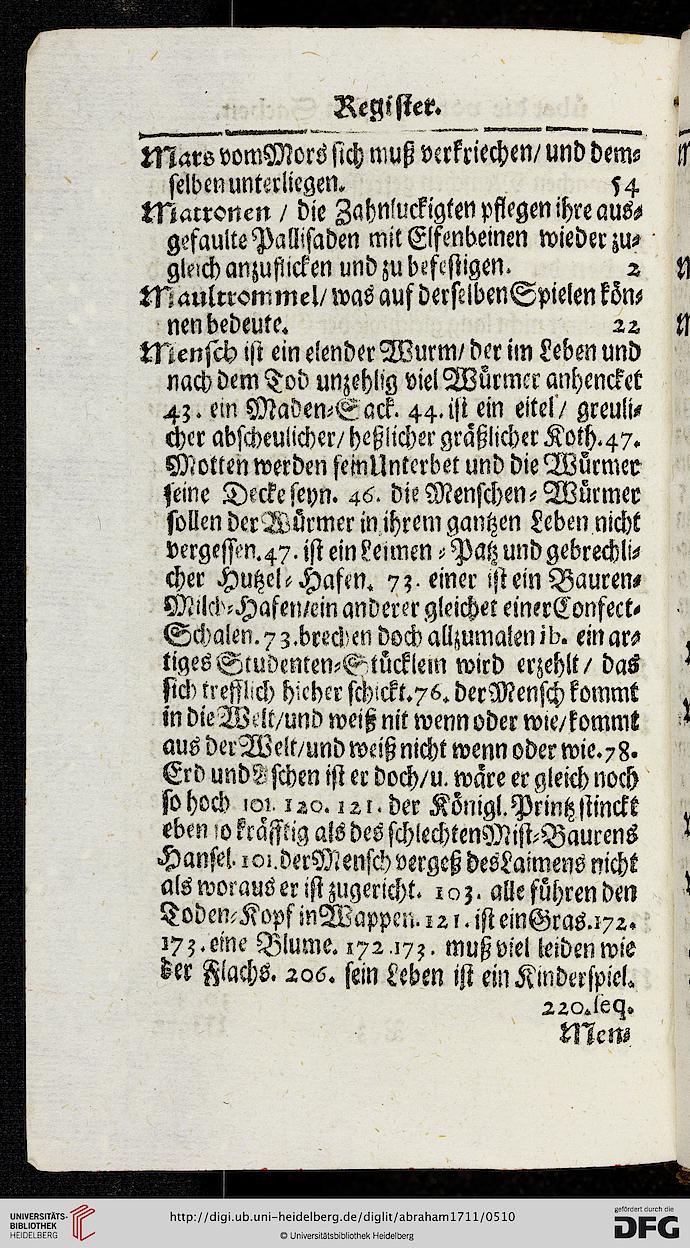 Register.
Mars vom Mors sich muß verkriechen/ und dem⸗
selben unterliegen. 54
Matronen / die Zahnluckigten pflegen ihre aus⸗
gefaulte Pallisaden mit Elfenbeinen wieder zu⸗
gleich anzuflicken und zu befestigen. 2
Maultrommel/ was auf derselben Spielen kön⸗
nen bedeute. 22
Mensch ist ein elender Wurm/ der im Leben und
nach dem Tod unzehlig viel Würmer anhencket
43. ein Maden⸗Sack. 44. ist ein eitel / greuli⸗
cher abscheulicher/ heßlicher gräßlicher Koth. 47.
Motten werden sein Unterbet und die Würmer
seine Decke seyn. 46. die Menschen⸗ Würmer
sollen der Würmer in ihrem gantzen Leben nicht
vergessen. 47. ist ein Leimen ⸗ Patz und gebrechli⸗
cher Hutzel⸗ Hafen. 73. einer ist ein Bauren⸗
Milch⸗Hafen/ein anderer gleichet einer Confect⸗
Schalen. 73. brechen doch allzumalen ib. ein ar⸗
tiges Studenten⸗Stücklein wird erzehlt / das
sich trefflich hieher schickt. 76. der Mensch kommt
in die Welt/und weiß nit wenn oder wie/kommt
aus der Welt/und weiß nicht wenn oder wie. 78.
Erd und Aschen ist er doch/u. wäre er gleich noch
so hoch 101. 120. 121. der Königl. Printz stinckt
eben so kräfftig als des schlechten Mist⸗Baurens
Hansel. 101. der Mensch vergeß des Laimens nicht
als woraus er ist zugericht. 103. alle führen den
Toden⸗Kopf in Wappen. 121. ist ein Gras. 172.
173. eine Blume. 172. 173. muß viel leiden wie
der Flachs. 206. sein Leben ist ein Kinderspiel.
220. seq.
Men⸗
UNIVERSITÄTS-
BIBLIOTHEK
HEIDELBERG
http://digi.ub.uni-heidelberg.de/diglit/abraham1711/0510
© Universitätsbibliothek Heidelberg
gefördert durch die
DFG